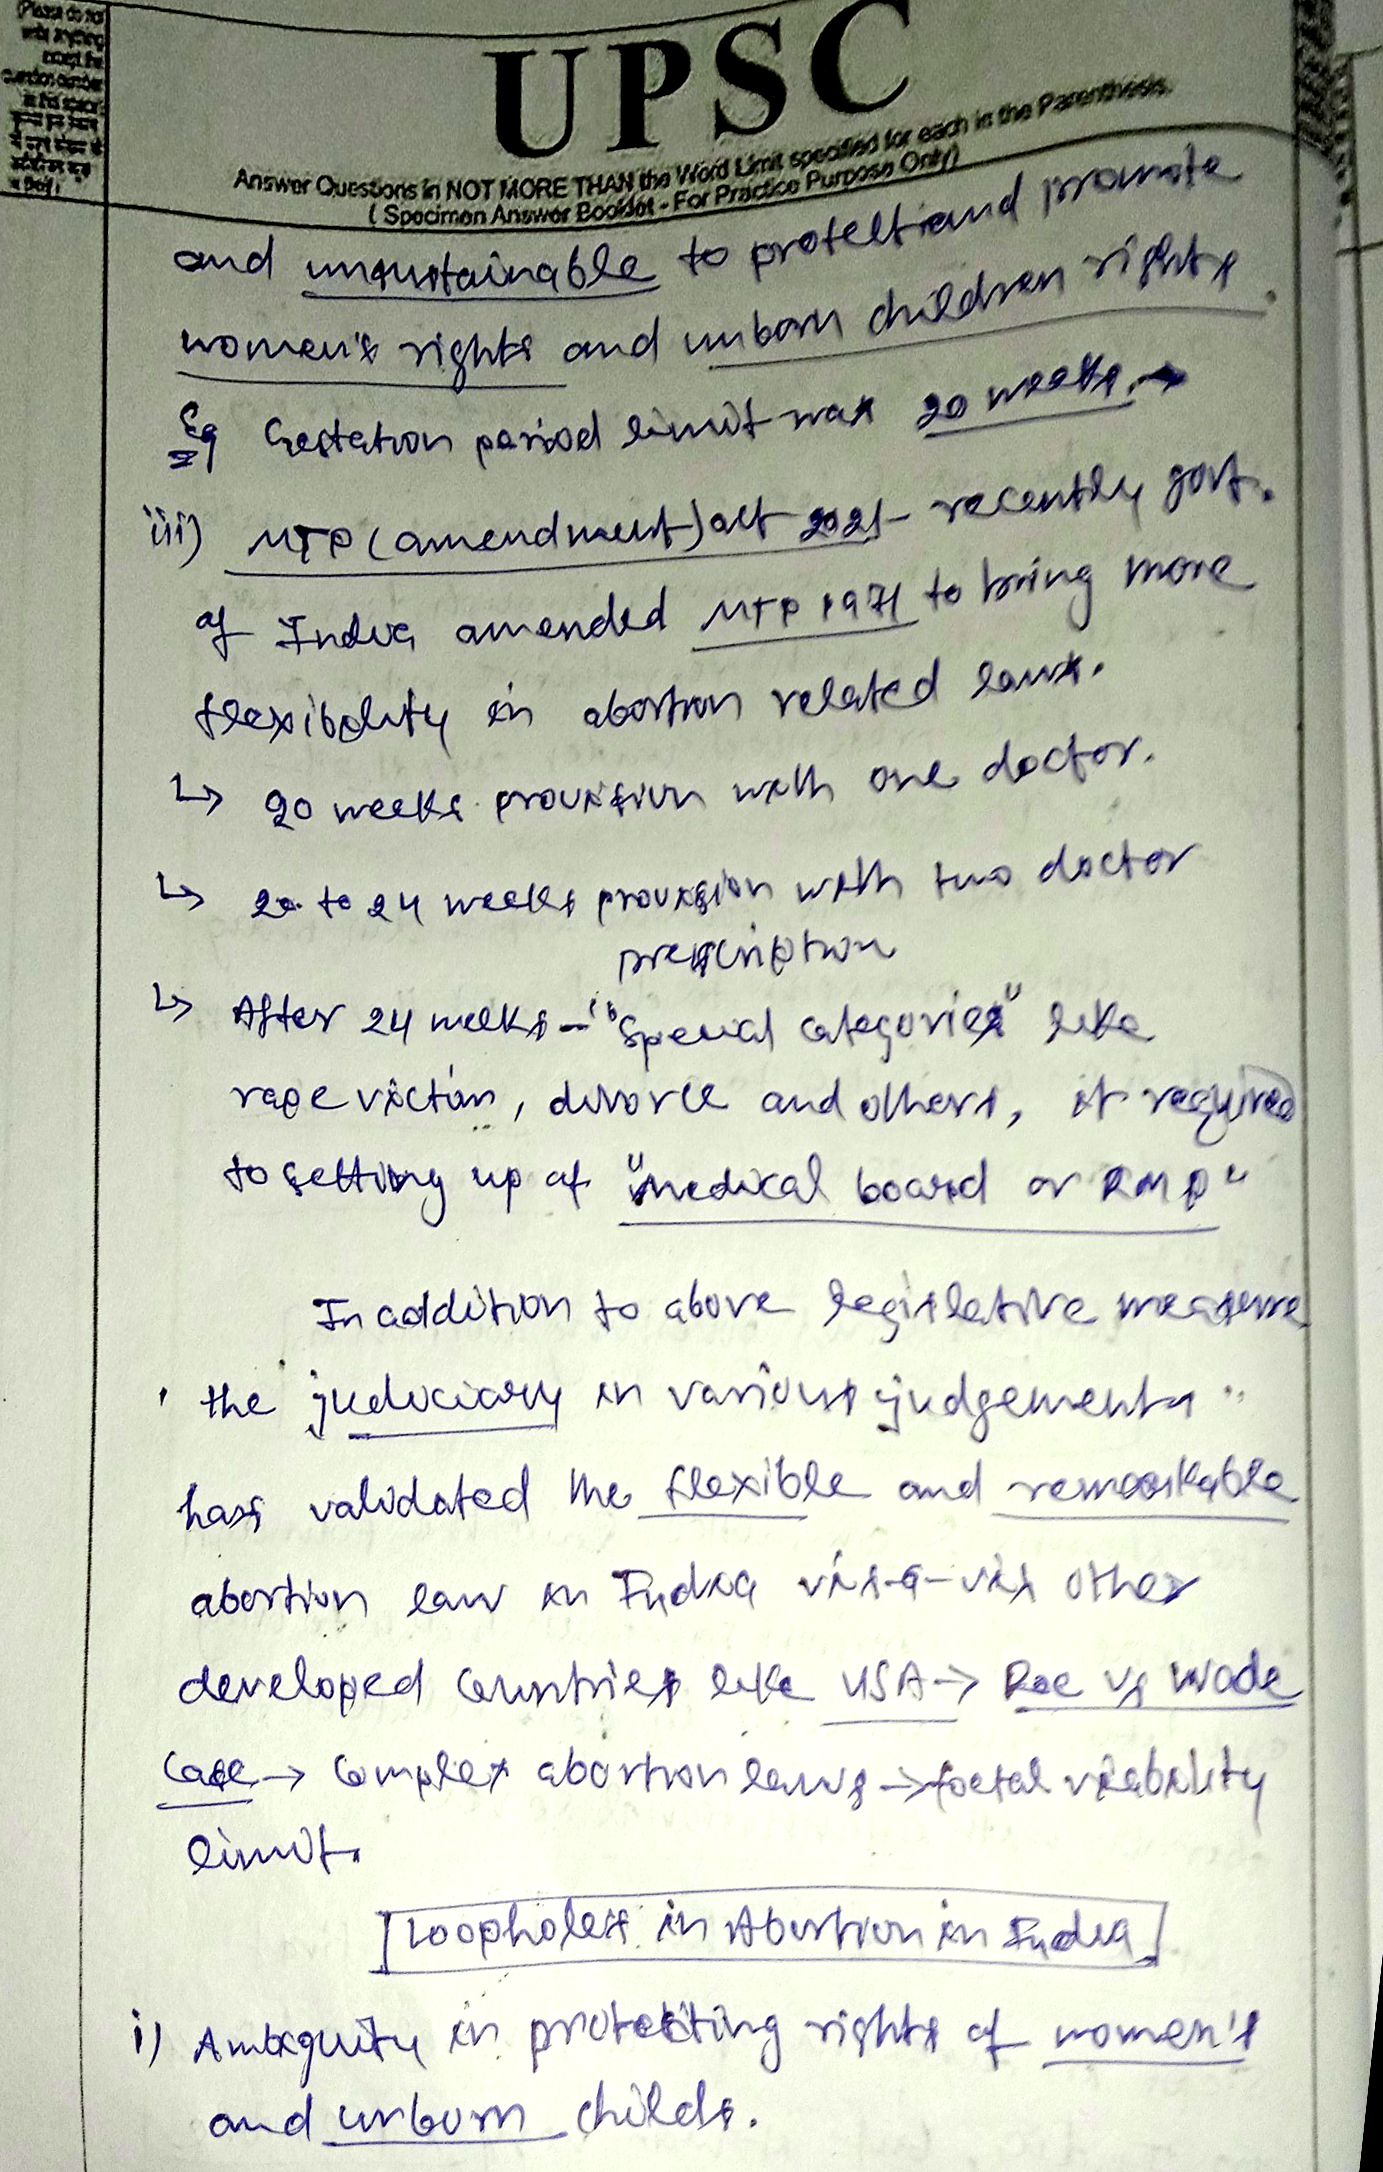 (Please do not
write anything
except the
question number
in this space)
UPSC
Answer Questions in NOT MORE THAN the Word Limit specified for each in the Parenthesis.
( Specimen Answer Booklet - For Practice Purpose Only)
and unsustainable to protect and promote
women's rights and unborn children rights.
Eg Gestation period limit was 20 weeks.
iii) MTP (amendment) act 2021 - recently govt.
of India amended MTP 1971 to bring more
flexibility in abortion related laws.
↳ 20 weeks provision with one doctor.
↳ 20 to 24 weeks provision with two doctor
prescription
↳ After 24 weeks - "Special categories" like
rape victim, divorce and others, it required
to setting up of "medical board or RMP"
In addition to above legislative measure
the judiciary in various judgements
has validated the flexible and remarkable
abortion law in India vis-a-vis other
developed countries like USA → Roe vs Wade
Case → Complex abortion laws → foetal viability
limit.
Loopholes in Abortion in India
i) Ambiguity in protecting rights of women's
and unborn childs.